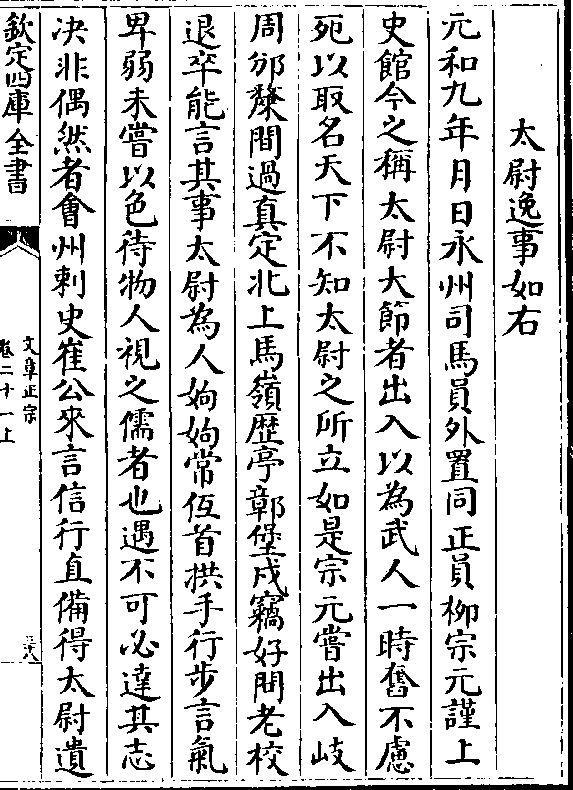 太尉逸事如右
元和九年月日永州司馬員外置同正員柳宗元謹上
史館今之稱太尉大節者出入以為武人一時奮不慮
死以取名天下不知太尉之所立如是宗元嘗出入岐
周邠斄間過真定北上馬嶺歴亭鄣堡戍竊好問老校
退卒能言其事太尉為人姁姁常低首拱手行步言氣
卑弱未嘗以色待物人視之儒者也遇不可必達其志
决非偶然者會州刺史崔公來言信行直備得太尉遺
欽定四庫全書
文章正宗
卷二十一上